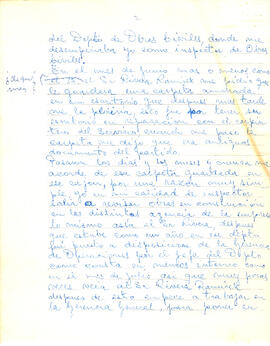 2
del Depto de Obras Civiles, donde me
desempeñaba yo como inspector de Obras
Civiles.
En el mes de Junio mas o menos como
el Sr Rivera Ramirez me pidió que
le guardara una carpeta
en un escritorio que despues mas tarde
me la pediria, esto fue por tener su
escritorio en
del Servicio cuando me paso la
carpeta me dijo que era antiguos
documentos del partido.
Pasaron los dias y los meses y nunca me
acorde de esa carpeta guardada en
ese cajon, por una RAZON muy sim-
ple yo en mi calidad de inspector
salia a revisar obras en construcción
en las distintas agencia de la empresa
lo mismo asia el Sr Rivera, despues
que estube como un año en ese depto
fui puesto a disposicion de la Gerencia
de Operaciones por el jefe del Depto
como consta en
en el mes de Julio asi que muy pocas
veces veia al Sr Rivera Ramirez
despues de esto empece a trabajar en
la Gerencia General, para poner en